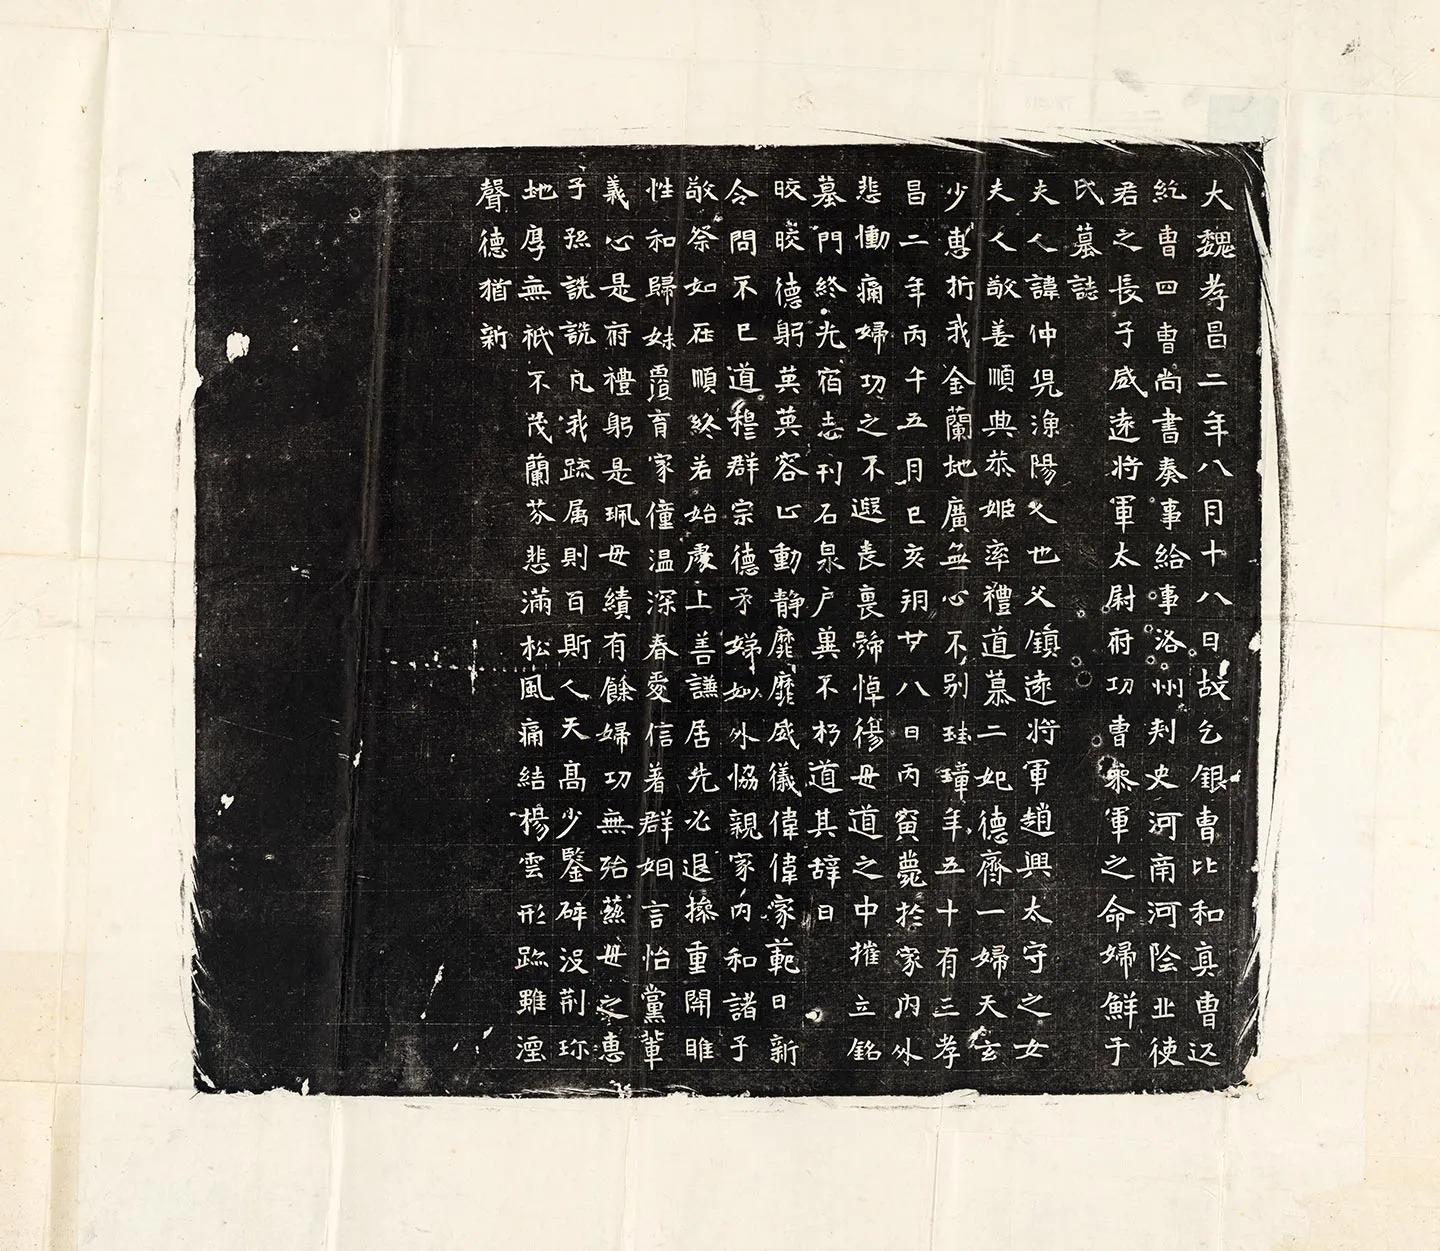 大魏孝昌二年八月十八日故乞銀曹比和真曹迟
紇曹四曹尚書奏事給事洛州刾史河南河陰丘使
君之長子威遠將軍太尉府功曹叅軍之命婦鮮于
氏墓誌
夫人諱仲皃漁陽人也父鎮遠將軍趙興太守之女
夫人敬善順典恭姬率禮道慕二妃德齊一婦天玄
少惠折我金蘭地廣無心不別珪璋年五十有三孝
昌二年丙午五月己亥朔廿八日丙寅薨於家內外
悲慟痛婦功之不遐長哀歸悼傷母道之中摧立銘
墓門終光宿志刊石泉戶冀不朽道其辞曰
皎皎德躬英英容止動靜靡靡威儀偉偉家範日新
令問不已道穆群宗德矛娣姒外恊親家內和諸子
敬祭如在順終若始處上善謙居先必退操重開雎
性和歸妹覆育家僮温深春愛信著群姻言怡黨輩
義心是府禮躬是珮母績有餘婦功無殆蒸毋之惠
子孫詵詵凡我踈属則百斯人天高少鑒碎没荆珎
地厚無祇不茂蘭芬悲滿松風痛結楊雲形跡雖湮
聲德猶新